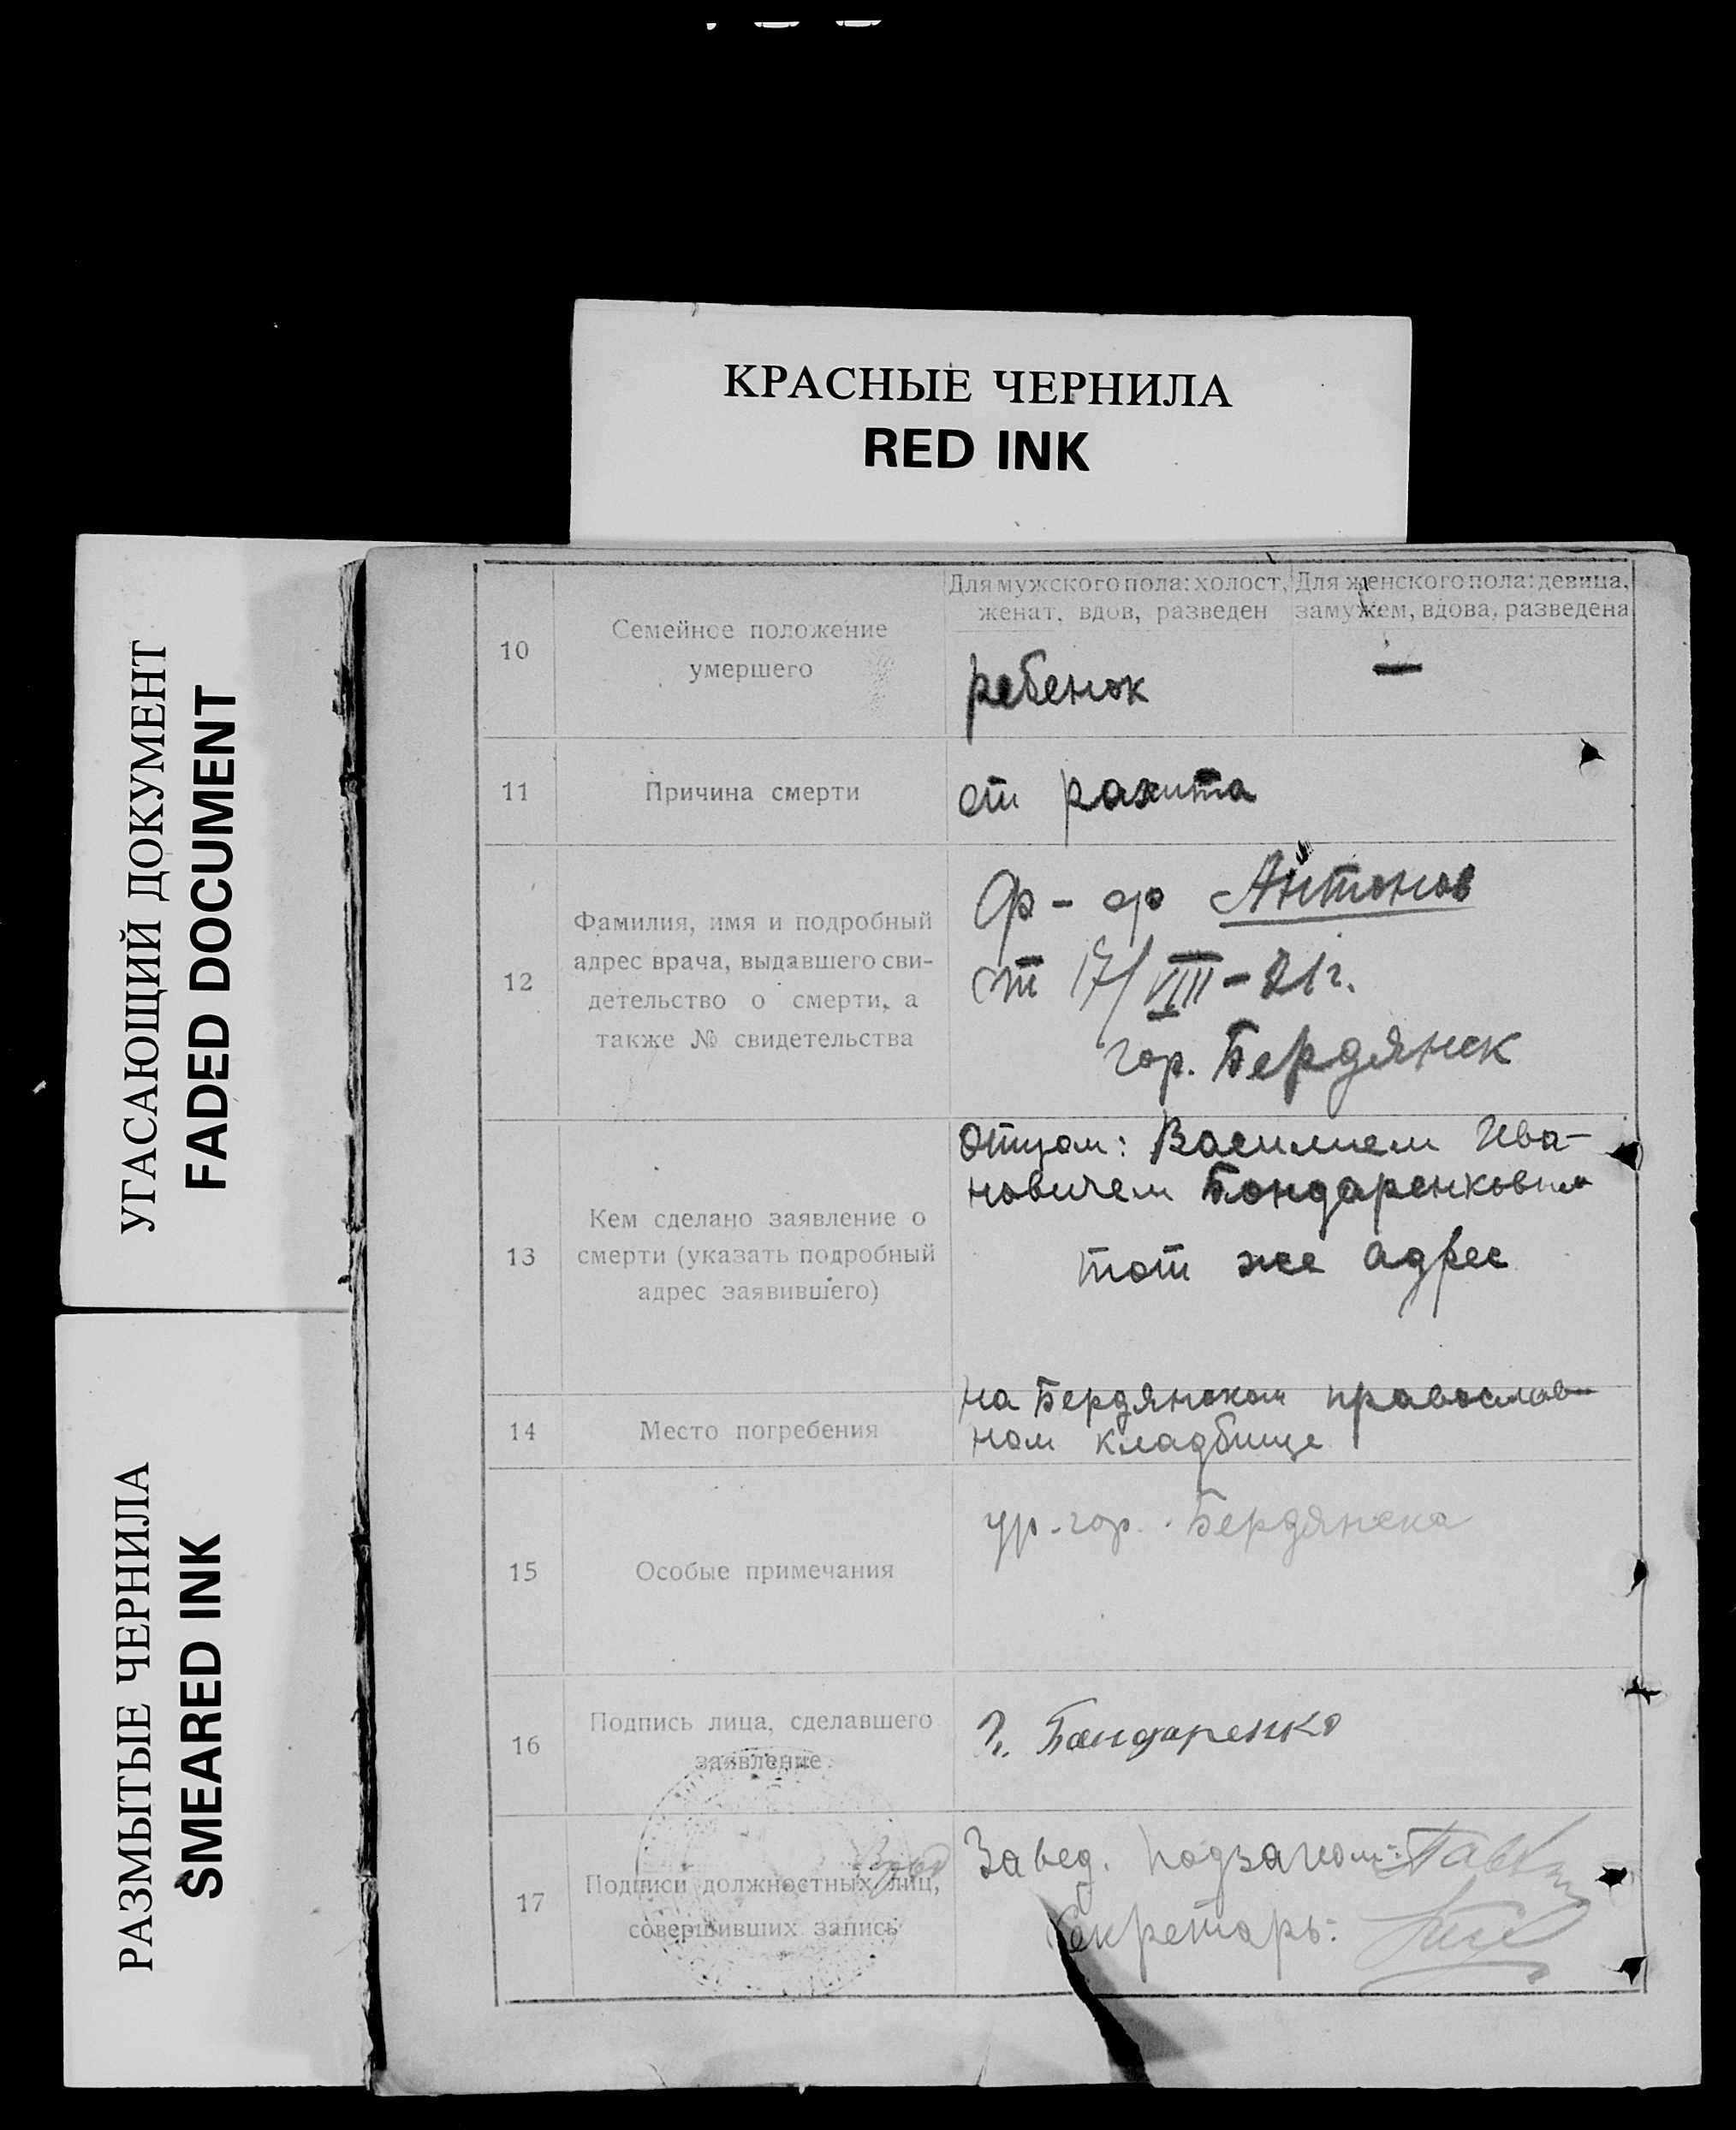 КРАСНЫЕ ЧЕРНИЛА
RED INK
УГАСАЮЩИЙ ДОКУМЕНТ
FADED DOCUMENT
РАЗМЫТЫЕ ЧЕРНИЛА
SMEARED INK
10
Семейное положение
умершего
Для мужского пола: холост,
женат, вдов, разведен
Для женского пола: девица,
замужем, вдова, разведена
ребенок
—
11
Причина смерти
от рахита
12
Фамилия, имя и подробный
адрес врача, выдавшего сви-
детельство о смерти, а
также № свидетельства
Антонов
от 17/VIII-21г.
гор. Бердянск
13
Кем сделано заявление о
смерти (указать подробный
адрес заявившего)
отцом: Василием Ива-
новичем Бондаренковым
тот же адрес
14
Место погребения
на Бердянском православ-
ном кладбище
15
Особые примечания
ур. гор. Бердянска
16
Подпись лица, сделавшего
заявление
Бондаренко
17
Подписи должностных лиц,
совершивших запись
Завед. подзагсом:
Секретарь: